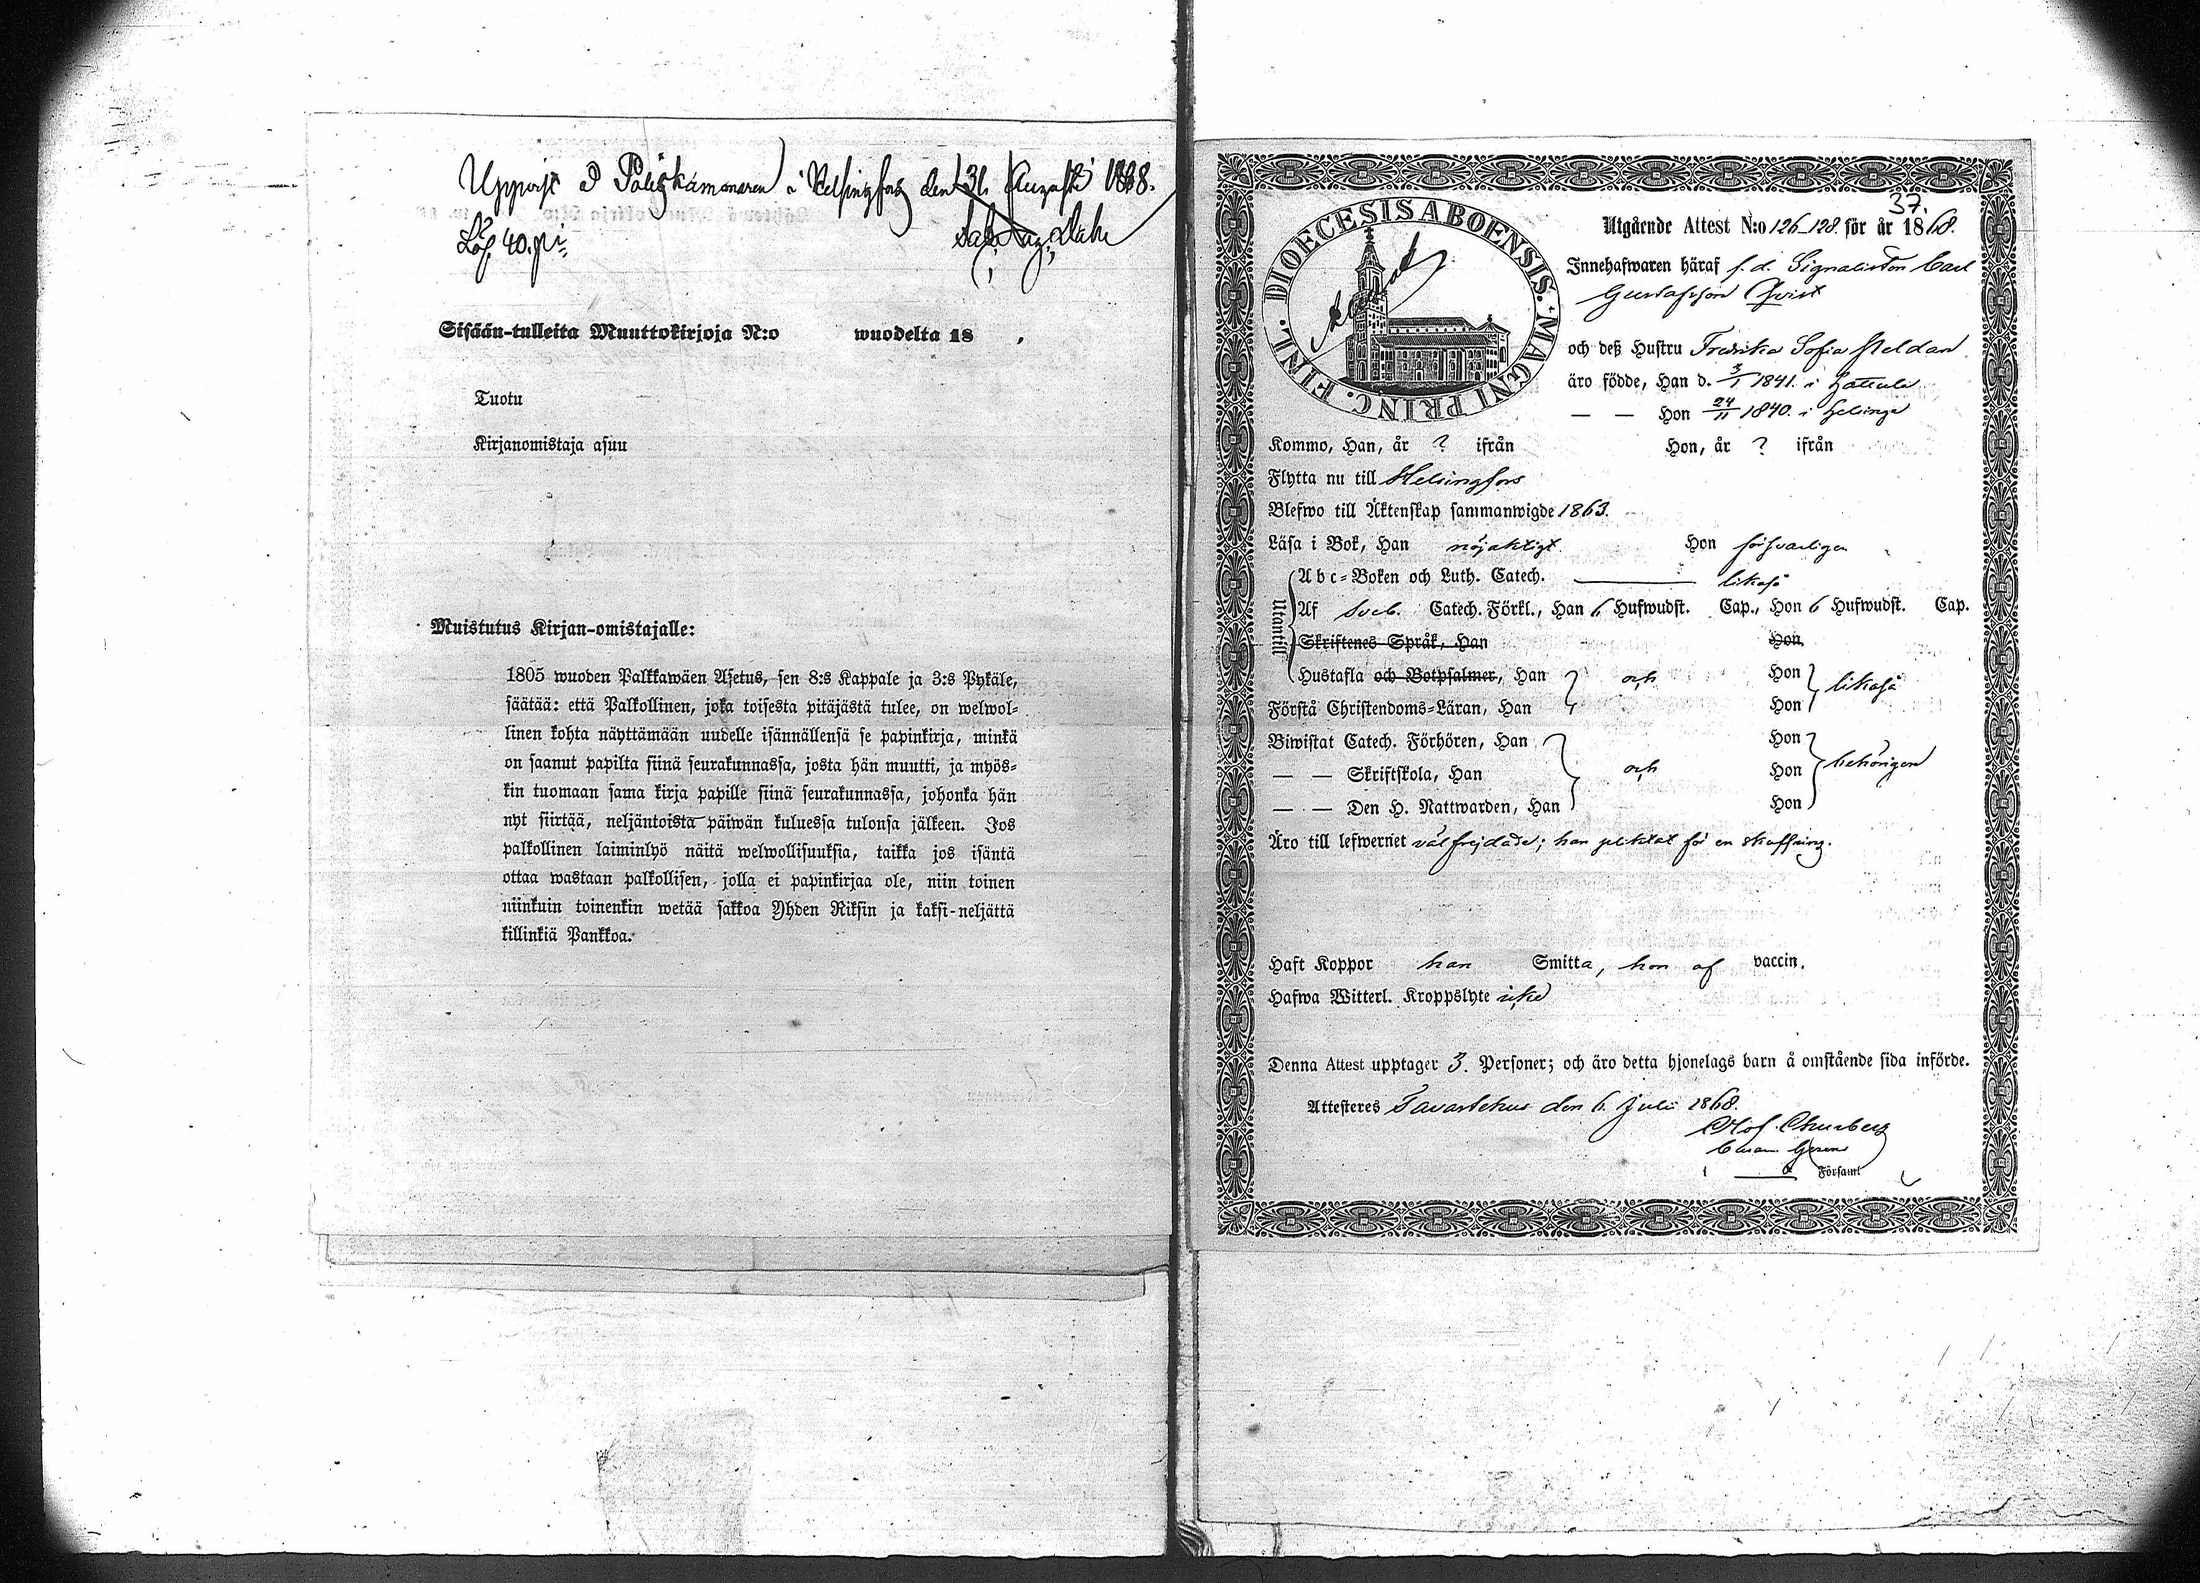 Uppvist å Poliskammaren i Helsingfors den 31 Augusti 1868.
Lös. 40. pi
Sisään-tulleita Muuttokirjoja N:o wuodelta 18 .
Tuotu
Kirjanomistaja asuu
Muistutus Kirjan-omistajalle:
1805 wuoden Palkkawäen Asetus, sen 8:s Kappale ja 3:s Pykäle,
säätää: että Palkollinen, joka toisesta pitäjästä tulee, on welwol-
linen kohta näyttämään uudelle isännällensä se papinkirja, minkä
on saanut papilta siinä seurakunnassa, josta hän muutti, ja myös-
kin tuomaan sama kirja papille siinä seurakunnassa, johonka hän
nyt siirtää, neljäntoista päiwän kuluessa tulonsa jälkeen. Jos
palkollinen laiminlyö näitä welwollisuuksia, taikka jos isäntä
ottaa wastaan palkollisen, jolla ei papinkirjaa ole, niin toinen
niinkuin toinenkin wetää sakkoa Yhden Riksin ja kaksi-neljättä
killinkiä Pankkoa.
37.
DIOECESIS ABOENSIS. MAGNI PRINC. FINL.
Utgående Attest N:o 126-128 för år 1868.
Innehafwaren häraf f. d. Signalisten Carl
Gustafsson Qvist
och deß Hustru Fredrika Sofia Meldan
äro födde, Han d. 3/1 1841. i Hattula
— — Hon 24/11 1840. i Helsinge
Kommo, Han, år ? ifrån Hon, år ? ifrån
Flytta nu till Helsingfors
Blefwo till Äktenskap sammanwigde 1863.
Läsa i Bok, Han nöjaktigt. Hon försvarligen
Utantill
Abc-Boken och Luth. Catech. likaså
Af Sveb. Catech. Förkl., Han 6 Hufwudst. Cap., Hon 6 Hufwudst. Cap.
Skriftenes Språk, Han Hon
Hustafla och Botpsalmer, Han och Hon likaså
Förstå Christendoms-Läran, Han Hon
Biwistat Catech. Förhören, Han Hon
— — Skriftskola, Han och Hon behörigen
— — Den H. Nattwarden, Han Hon
Äro till lefwernet välfrejdade; han pliktat för en skuffning.
Haft Koppor han Smitta, hon af vaccin.
Hafwa Witterl. Kroppslyte icke
Denna Attest upptager 3. Personer; och äro detta hjonelags barn å omstående sida införde.
Attesteres Tavastehus den 6. Juli 1868.
Olof Churberg
i Församl